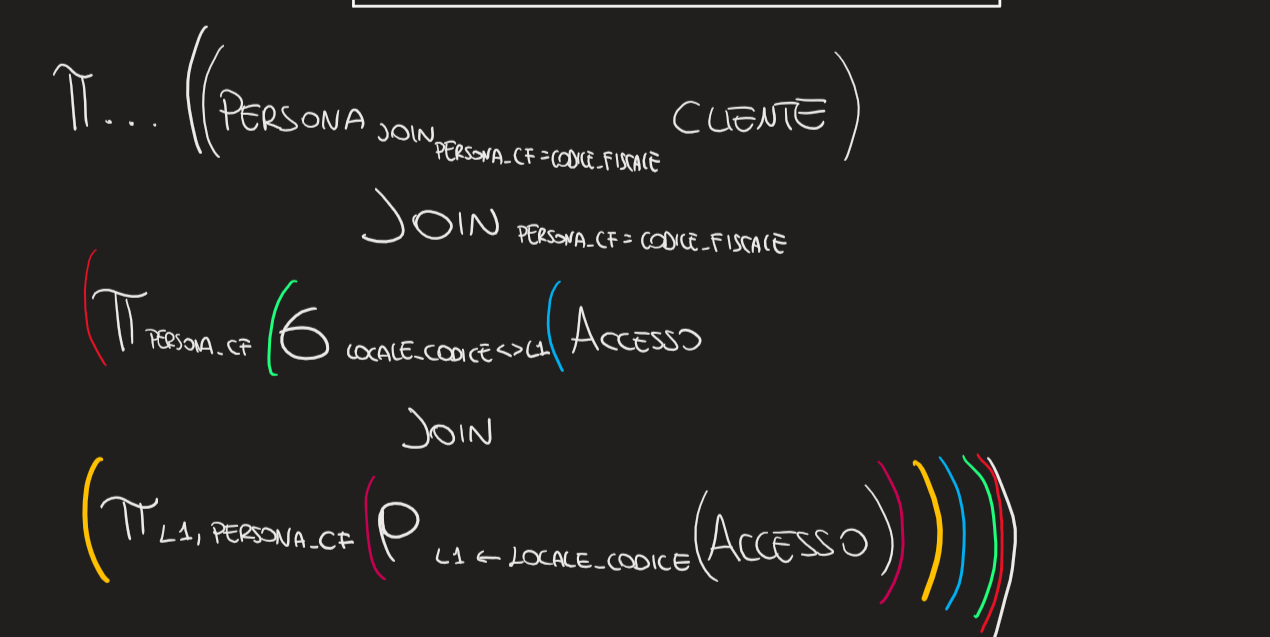 π... ((PERSONA JOIN PERSONA_CF=CODICE_FISCALE CLIENTE)
JOIN PERSONA_CF = CODICE_FISCALE
(π PERSONA_CF (σ LOCALE_CODICE<>L1 (ACCESSO
JOIN
(π L1, PERSONA_CF (ρ L1 ← LOCALE_CODICE (ACCESSO)))))))